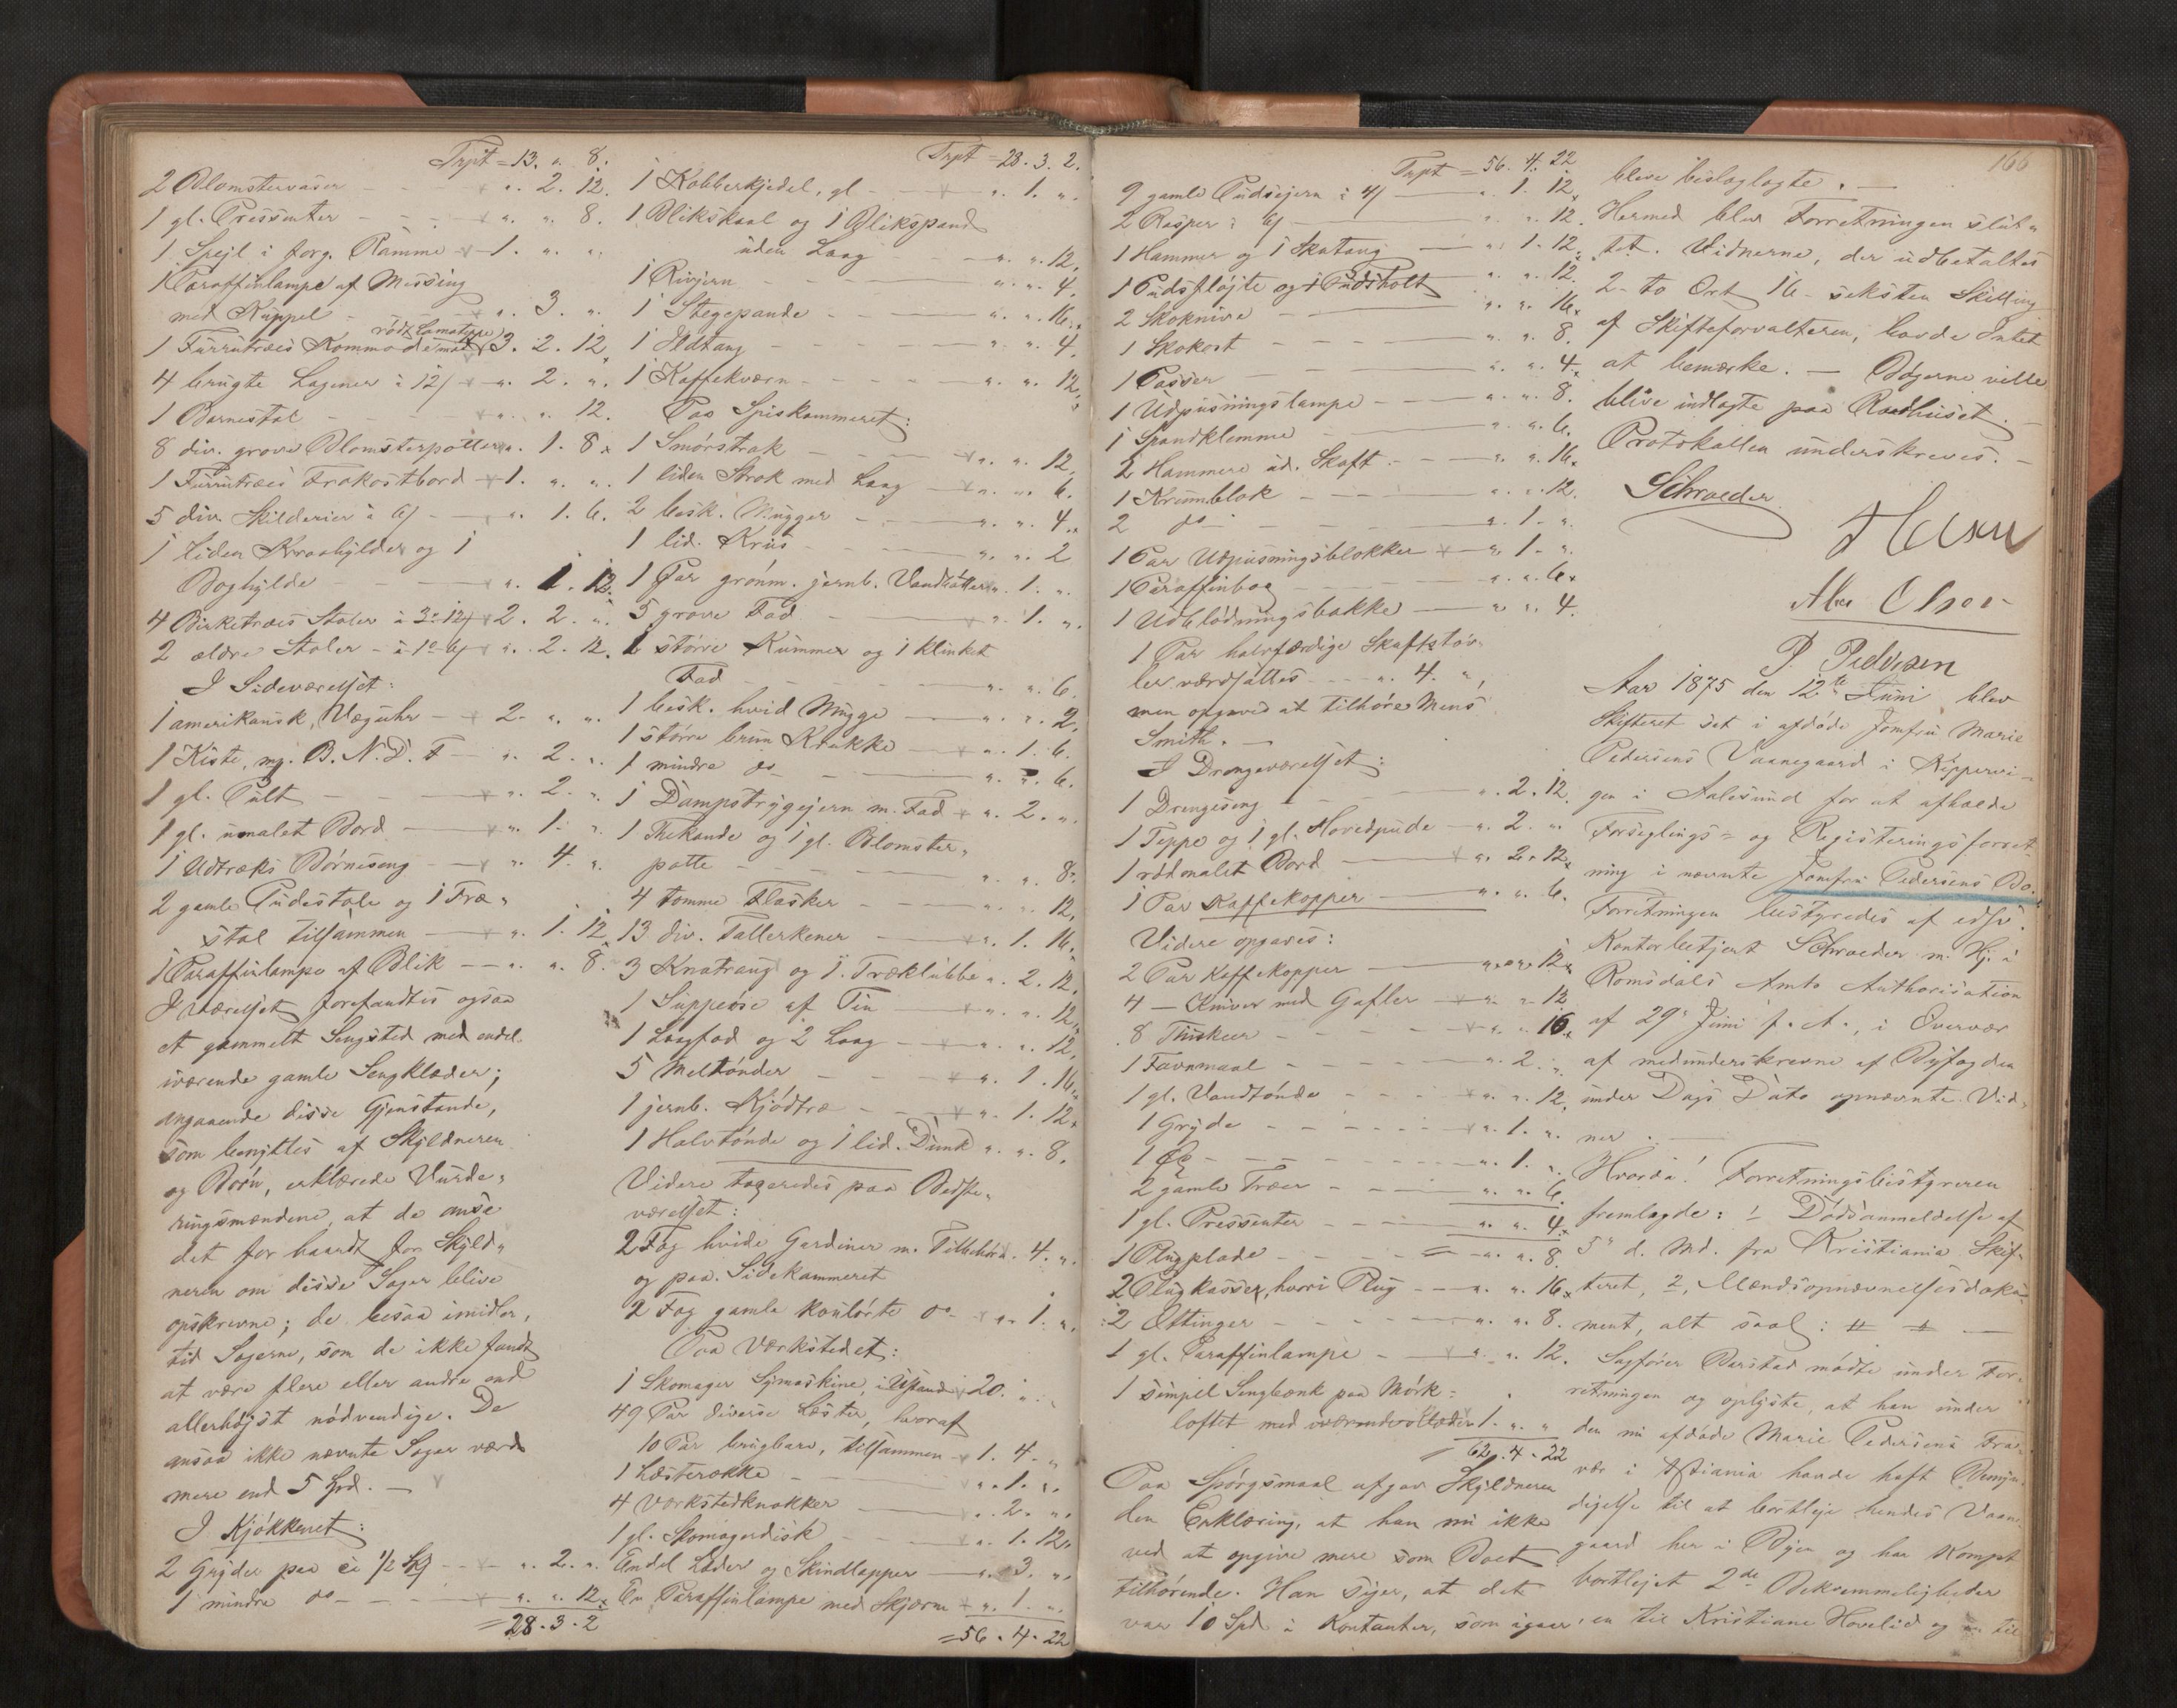 Trpt = 13. " 8.
2 Blomstervaser - " 2. 12.
1 gl. Pressenter - " " 8.
1 Spejl i forg. Ramme - 1. " "
1 Paraffinlampe af Messing
med Kuppel - " 3. "
1 Furrutræes Kommode med rødt Lamatæppe 3. 2. 12
4 brugte Lagener à 12/ - " 2. "
1 Barnestol - " " 12.
8 div. grove Blomsterpotter " 1. 8
1 Furrutræes Frokostbord - 1. " "
5 div. Skilderier à 6/ - " 1. 6.
1 liden Kraahylder og 1
Boghylde - " 1. 12.
4 Birketræes Stoler à 3" 12/ 2. 2. "
2 ældre Stoler - à 1" 6/ " 2. 12.
I Sideværelset:
1 amerikansk Væguhr - 2. " "
1 Kiste, mg. B. N. D. F - " 2. "
1 gl. Pult - " 2. "
1 gl. umalet Bord - " 1. "
1 Udtræks Børneseng - " 4. "
2 gamle Pudestole og 1 Træ"
stol tilsammen - " 1. 12
1 Paraffinlampe af Blik - " " 8.
I Værelset forefandtes ogsaa
et gammelt Sengsted med endel
iværende gamle Sengklæder;
angaaende disse Gjenstande,
som benyttes af Skyldneren
og Børn, erklærede Vurde"
ringsmændene, at de anse
det for haardt for Skyld"
neren om disse Sager blive
opskrevne; de besaa imidler"
tid Sagerne, som de ikke fandt
at være flere eller andre end
allerhøjst nødvendige. De
ansaa ikke nævnte Sager værd
mere end 5 Spd. -
I Kjøkkenet:
2 Gryder paa ei 1/2 Skj - " 2. "
1 mindre do - " " 12.
= 28. 3. 2
Trpt = 28. 3. 2.
1 Kobberkjedel, gl - " 1. "
1 Blikskaal og 1 Blikspand
uden Laag - " " 12.
1 Rivjern - " " 4.
1 Stegepande - " " 16.
1 Ildtang - " " 4.
1 Kaffekværn - " " 12.
Paa Spiskammeret:
1 Smørstrak - " " 12.
1 liden Strok med Laag - " " 6.
2 besk. Mugger - " " 4.
1 lid. Krus - " " 2
1 Par grønm. jernb. Vandbøtter " 1. "
5 grove Fad - " 1. "
1 større Kummer og 1 klinket
Fad - " " 6.
1 besk. hvid Mugge - " " 2.
1 større brun Krukke - " 1. 6.
1 mindre do - " " 6.
1 Dampstrygejern m. Fad " 2. "
1 Thekande og 1 gl. Blomster"
potte - " " 8.
4 tomme Flasker - " " 12.
13 div. Tallerkener - " 1. 16.
3 Knatraug og 1. Træklubbe " 2. 12.
1 Suppeøse af Tin - " " 12.
1 Laagfad og 2 Laag - " " 12.
5 Meltønder - " 1. 16.
1 jernb. Kjødtræ - " 1. 12.
1 Halvtønde og 1 lid. Dunk " " 8.
Videre toges paa Bedste"
værelset:
2 Fag hvide Gardiner m. Tilbehør " 4. "
og paa Sidekammeret
2 Fag gamle koulørte do - " 1. "
Paa Værkstedet:
1 Skomager Symaskine, i Ustand 20. " "
49 Par diverse Læster, hvoraf
10 Par brugbare, tilsammen 1. 4. "
1 Læsterække - " 1. "
4 Værkstedkrakker - " 2. "
1 gl. Skomagerdisk - " 1. 12.
Endel Læder og Skindlapper - " 3. "
En Paraffinlampe med Skjærm " 1. "
= 56. 4. 22
166
Trpt = 56. 4. 22
9 gamle Pudsejern à 4/ - " 1. 12.
2 Rasper à 6/ - " " 12.
1 Hammer og 1 Skotang - " 1. 12
1 Pudsfløjte og 1 Pudsholt - " " 12.
2 Skoknive - " " 16.
1 Skokost - " " 8.
1 Passer - " " 4.
1 Udpusningslampe - " " 8.
1 Spandklemme - " " 6.
2 Hammere ud. Skaft - " " 16.
1 Krumblok - " " 12.
2 do - " 1. "
1 Par Udpusningsblokker - " 1. "
1 Paraffinbog - " " 6.
1 Udblødningsbakke - " " 4.
1 Par halvfærdige Skaftstøv"
ler værdsattes - " 4. "
men opgaves at tilhøre Mons
Smith. -
I Drengeværelset:
1 Drengeseng - " 2. 12.
1 Teppe og 1 gl. Hovedpude - " 2. "
1 rødmalet Bord - " 2. 12.
1 Par Kaffekopper - " " 6.
Videre opgaves:
2 Par Kaffekopper - " " 12
4 - Kniver med Gafler - " " 12
8 Thiskeer - " " 16
1 Favnmaal - " 2. "
1 gl. Vandtønde - " " 12.
1 Gryde - " 1. "
1 do - " 1. "
2 gamle Træer - " " 6.
1 gl. Pressenter - " " 4.
1 Plugplade - " " 8.
2 Plugkasser, hvori Plug - " " 16
2 Ottinger - " " 8.
1 gl. Paraffinlampe - " " 12.
1 simpel Sengbænk paa Mørk=
loftet med iværende Klæder 1. " "
62. 4. 22
Paa Spørgsmaal afgav Skyldneren
den Erklæring, at han nu ikke
ved at opgive mere som Boet
tilhørende. Han siger, at det
var 10 Spd i Kontanter, som igaar
bleve beslaglagte. -
Hermed blev Forretningen slut"
tet. Vidnerne, der udbetaltes
2 - to Ort 16 - seksten Skilling
af Skifteforvalteren, havde Intet
at bemærke. - Bøgerne ville
blive indlagte paa Raadhuset. -
Protokollen underskreves. -
Schroeder
Olsen
P. Pedersen
Aar 1875 den 12te Juni blev
Skifteret sat i afdøde Jomfru Marie
Pedersens Vaanegaard i Kippervi=
gen i Aalesund for at afholde
Forseglings= og Registeringsforret=
ning i nævnte Jomfru Pedersens Bo.
Forretningen bestyredes af edsv.
Kontorbetjent Schroeder m. Hj. à
Romsdals Amts Authorisation
af 29. Juni f. A., i Overvær
af medunderskrevne af Byfogden
under Dags Dato opnævnte Vid"
ner. -
Hvorda! Forretningsbestyreren
fremlagde: 1 Dødsanmeldelse af
5" d. Md. fra Kristiania Skif"
teret, 2, Mændsopnævnelsesdoku"
ment, alt saal: # # -
Sagfører Barstad mødte under For"
retningen og oplyste, at han under
den nu afdøde Marie Pedersens Fra"
vær i Xstiania havde haft Bemyn"
digelse til at bortleje hendes Vaane"
gaard her i Byen og har Kompt
bortlejet 2de Beksemmeligheder
en til Kristiane Hovelid og en til